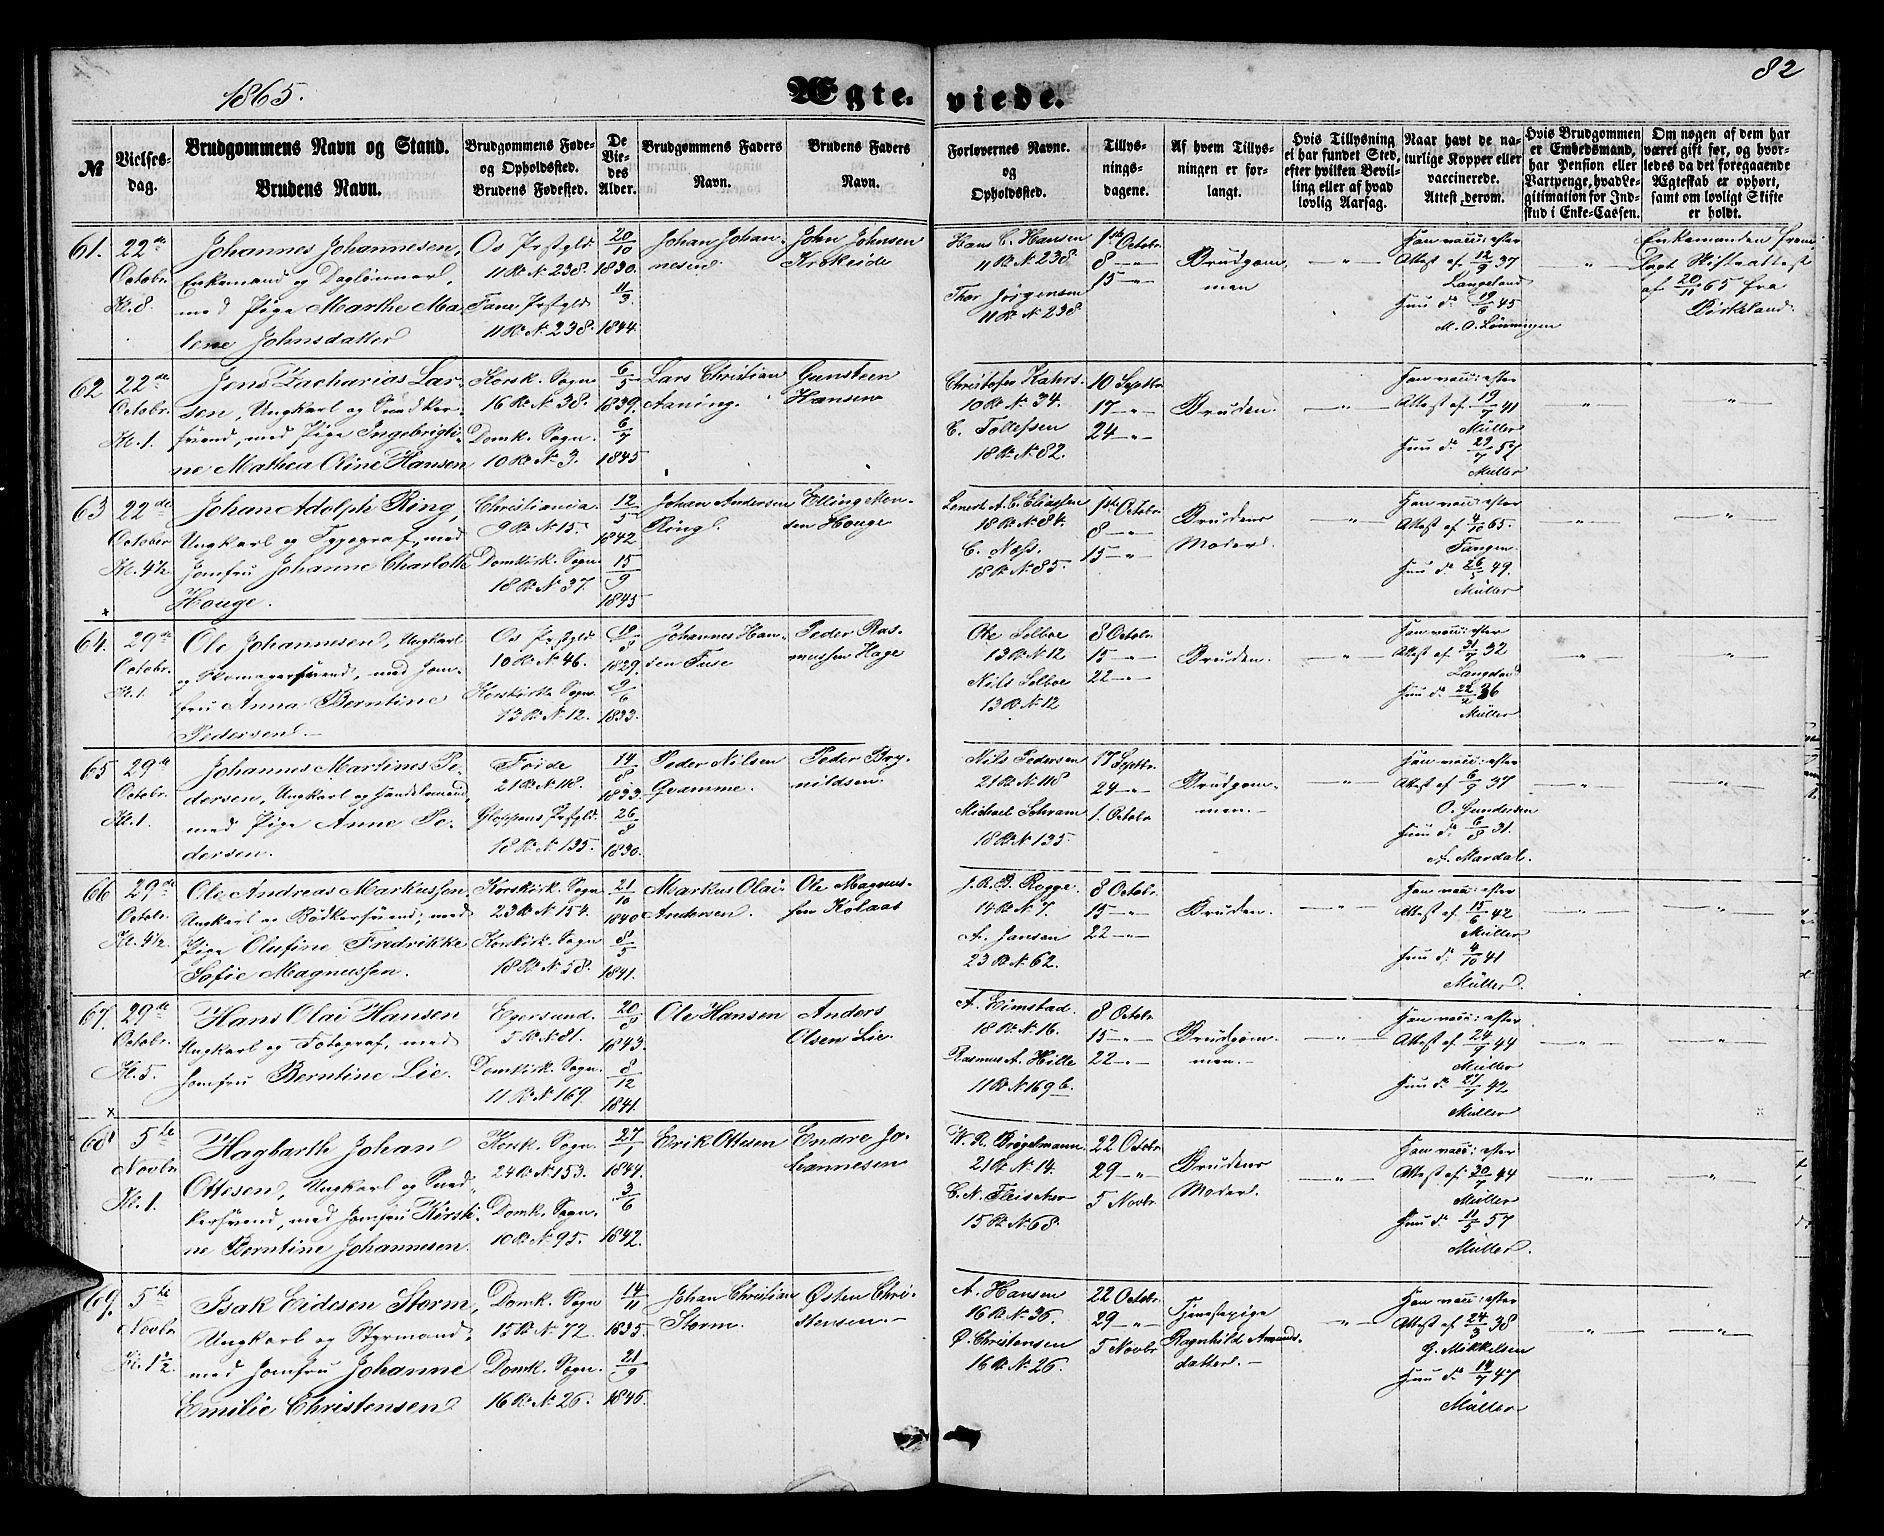 1865.
Ægte.
viede.
82
№
Vielses-
dag.
Brudgommens Navn og Stand.
Brudens Navn.
Brudgommens Føde-
og Opholdssted.
Brudens Fødested.
De
Vie-
des
Alder.
Brudgommens Faders
Navn.
Brudens Faders
Navn.
Forlovernes Navne.
og
Opholdssted.
Tillys-
nings-
dagene.
Af hvem Tillys-
ningen er for-
langt.
Hvis Tillysning
ei har fundet Sted,
efter hvilken Bevil-
ling eller af hvad
lovlig Aarsag.
Naar havt de na-
turlige Kopper eller
vaccinerede.
Attest derom.
Hvis Brudgommen
er Embedsmand,
har Pension eller
Vartpenge, hvad Le-
gitimation for Ind-
skud i Enke-Cassen.
Om nogen af dem har
været gift før, og hvor-
ledes da det foregaaende
Ægteskab er ophørt,
samt om lovligt Skifte
er holdt.
61.
22de
Octobr.
Kl. 8.
Johannes Johannesen,
Enkemand og Daglønner,
med Pige Marthe Ma-
lene Johnsdatter
Os Prstgld
11 R. N. 238.
Fane Prstgld
11 R. N. 238.
20/10
1830.
11/3
1844.
Johan Johan-
nesen
John Johnsen
Krokeide
Hans C. Hansen
11 R. N. 238.
Thor Jørgensen
11 R. N. 238
1ste Octobr.
8 -"-
15 -"-
Brudgom-
men
-"-
Han vacc: efter
Attest af 12/9 37
Langeland
Hun do 19/6 45
M. O. Lønningen
"
Enkemanden frem-
lagt Skifteattest
af 20/11 65 fra
Birkeland.
62
22de
Octobr.
Kl. 1.
Jens Zacharias Lar-
sen, Ungkarl og Snedker-
svend, med Pige Ingebrigti-
ne Mathea Oline Hansen
Korsk. Sogn
16 R. N. 38.
Domk. Sogn.
10 R. N. 3.
6/5
1839.
6/7
1845
Lars Christian
Aaning.
Gunsteen
Hansen
Christofer Kahrs.
10 R. N. 34.
C. Tollefsen
18 R. N. 82.
10 Septbr
17 -"-
24 -"-
Bruden.
-"-
Han vacc: efter
Attest af 19/7 41
Müller
Hun do 22/7 57
Müller
-"-
"
63
22de
October
Kl. 4½
Johan Adolph Ring,
Ungkarl og Typograf, med
Jomfru Johanne Charlotte
Houge.
Christiania.
9 R. N. 15.
Domkirk. Sogn
18 R. N. 37.
12/5
1842
15/9
1845
Johan Andersen
Ring
Elling Mon-
sen Houge
18 R. N. 84.
C. Næss.
18 R. N. 85.
1ste Octobr.
8 -"-
15 -"-
Brudens
Moder.
"
Han vacc: efter
Attest af 4/10 65.
Tangen.
Hun do 26/5 49.
Müller
-"-
-"-
64.
29de
Octobr.
Kl. 1.
Ole Johannesen, Ungkarl
og Skomagersvend, med Jom-
fru Anna Berntine
Pedersen.
Os Prstgld
10 R. N. 46.
Korskirk. Sogn.
13 R. N. 12.
19/8
1829.
9/6
1833.
Johannes Han-
sen Tuse
Peder Ras-
mussen Hage
Ole Solboe
13 R. N. 12
Nils Solboe
13 R. N. 12
8 Octobr
15 -"-
22 -"-
Bruden.
-"-
Han vacc: efter
Attest af 31/7 32
Langeland
Hun do 22/2 36
Müller
-"-
-"-
65
29de
Octobr.
Kl. 1.
Johannes Martines Pe-
dersen, Ungkarl og Handelsmand,
med Pige Anne Pe-
dersen.
Førde
21 R. N. 118.
Gloppens Prstgld.
18 R. N. 135.
14/8
1833.
26/8
1830.
Peder Nilsen
Qvamme.
Peder Bry-
nildsen.
Nils Pedersen
21 R. N. 118
Michael Schram
18 R. N. 135.
17 Septbr.
24 -"-
1. Octobr
Brudgom-
men.
-"-
Han vacc: efter
Attest af 6/9 37
O. Gundersen
Hun do 6/8 31.
A. Mardal.
-"-
-"-
66
29de
Octobr.
Kl. 4½
Ole Andreas Markussen,
Ungkarl og Bødkersvend, med
Pige Olufine Fredrikke
Sofie Magnussen.
Korskirk. Sogn
23 R. N. 154.
Korskirk. Sogn
18 R. N. 58.
21/10
1840
8/5
1841.
Markus Olai
Andersen.
Ole Magnus-
sen Kolaas
J. R. B. Rogge.
14 R. N. 7.
A. Jansen
23 R. N. 62.
8 Octobr.
15 -"-
22 -"-
Bruden.
-"-
Han vacc: efter
Attest af 15/6 42
Müller
Hun do 4/10 41
Müller.
-"-
-"-
67.
29de
Octobr.
Kl. 5.
Hans Olai Hansen
Ungkarl og Fotograf, med
Jomfru Berntine Lie.
Egersund.
5 R. N. 81.
Domkirk. Sogn.
11 R. N. 169.
20/8
1843.
8/12
1841.
Ole Hansen
Anders
Olsen Lie.
A. Eimstad.
18 R. N. 16.
Rasmus A. Hille
11 R. N. 169 b.
8 Octobr.
15 -"-
22 -"-
Brudgom-
men.
-"-
Han vacc: efter
Attest af 24/9 44
Müller
Hun do 27/7 42
Müller
-"-
-"-
68
5te
Novbr
Kl. 1
Hagbarth Johan
Ottesen, Ungkarl og Sned-
kersvend, med Jomfru Kørsti-
ne Berntine Johannesen.
Korsk. Sogn.
24 R. N. 153.
Domk. Sogn.
10 R. N. 95.
27/1
1844.
3/6
1842.
Erik Ottesen
Endre Jo-
hannesen
W. R. Brøgelmann.
21 R. N. 14.
C. N. Fleischer
15 R. N. 68.
22 Octobr.
29 -"-
5 Novbr.
Brudens
Moder.
-"-
Han vacc: efter
Attest af 30/7 44
Müller
Hun do 11/3 57
Müller.
-"-
-"-
69.
5te
Novbr
Kl. 1½.
Isak Eidesen Storm,
Ungkarl og Styrmand,
med Jomfru Johanne
Emilie Christensen
Domk. Sogn
15 R. N. 72.
Domk. Sogn.
16 R. N. 26.
14/11
1835.
21/9
1846.
Johan Christian
Storm.
Østen Chri-
stensen.
A. Hansen
16 R. N. 36.
Ø. Christensen
16 R. N. 26.
22 Octobr.
29 -"-
5 Novbr
Tjenestepige
Ragnhilde Amunds-
datter.
-"-
Han vacc: efter
Attest af 24/3 38
G. Mikkelsen
Hun do 14/7 47
Müller
-"-
-"-